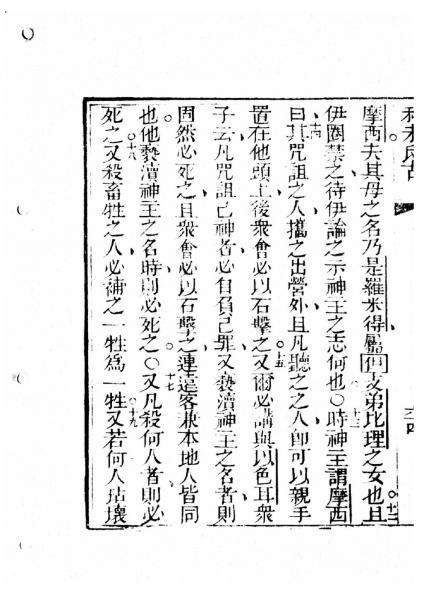 利未氏古
摩西夫其母之名乃是羅米得屬但支弟比理之女也十二且
伊圈禁之待伊論之示神主之志何也○十三時神主謂摩西
曰十四其咒詛之人攜之出營外且凡聽之之人卽可以親手
置在他頭上後衆會必以石擊之十五又爾必講與以色耳衆
子云凡咒詛己神者必自負己罪又褻瀆神主之名者則
固然必死之且衆會必以石擊之連遠客兼本地人皆同
也他褻瀆神主之名時則必死之○十七又凡殺何人者則必
死之十八又殺畜牲之人必補之一牲為一牲十九又若何人玷壞